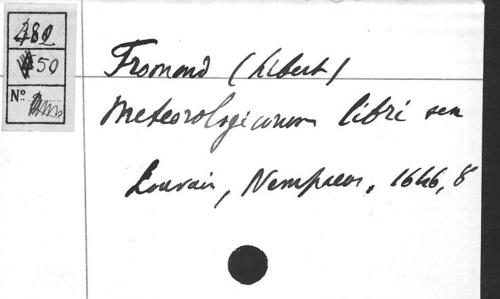 482
50
Nº
Fromond (Libert)
Meteorologicorum libri sex
Louvain, Nempaeus, 1646, 8°